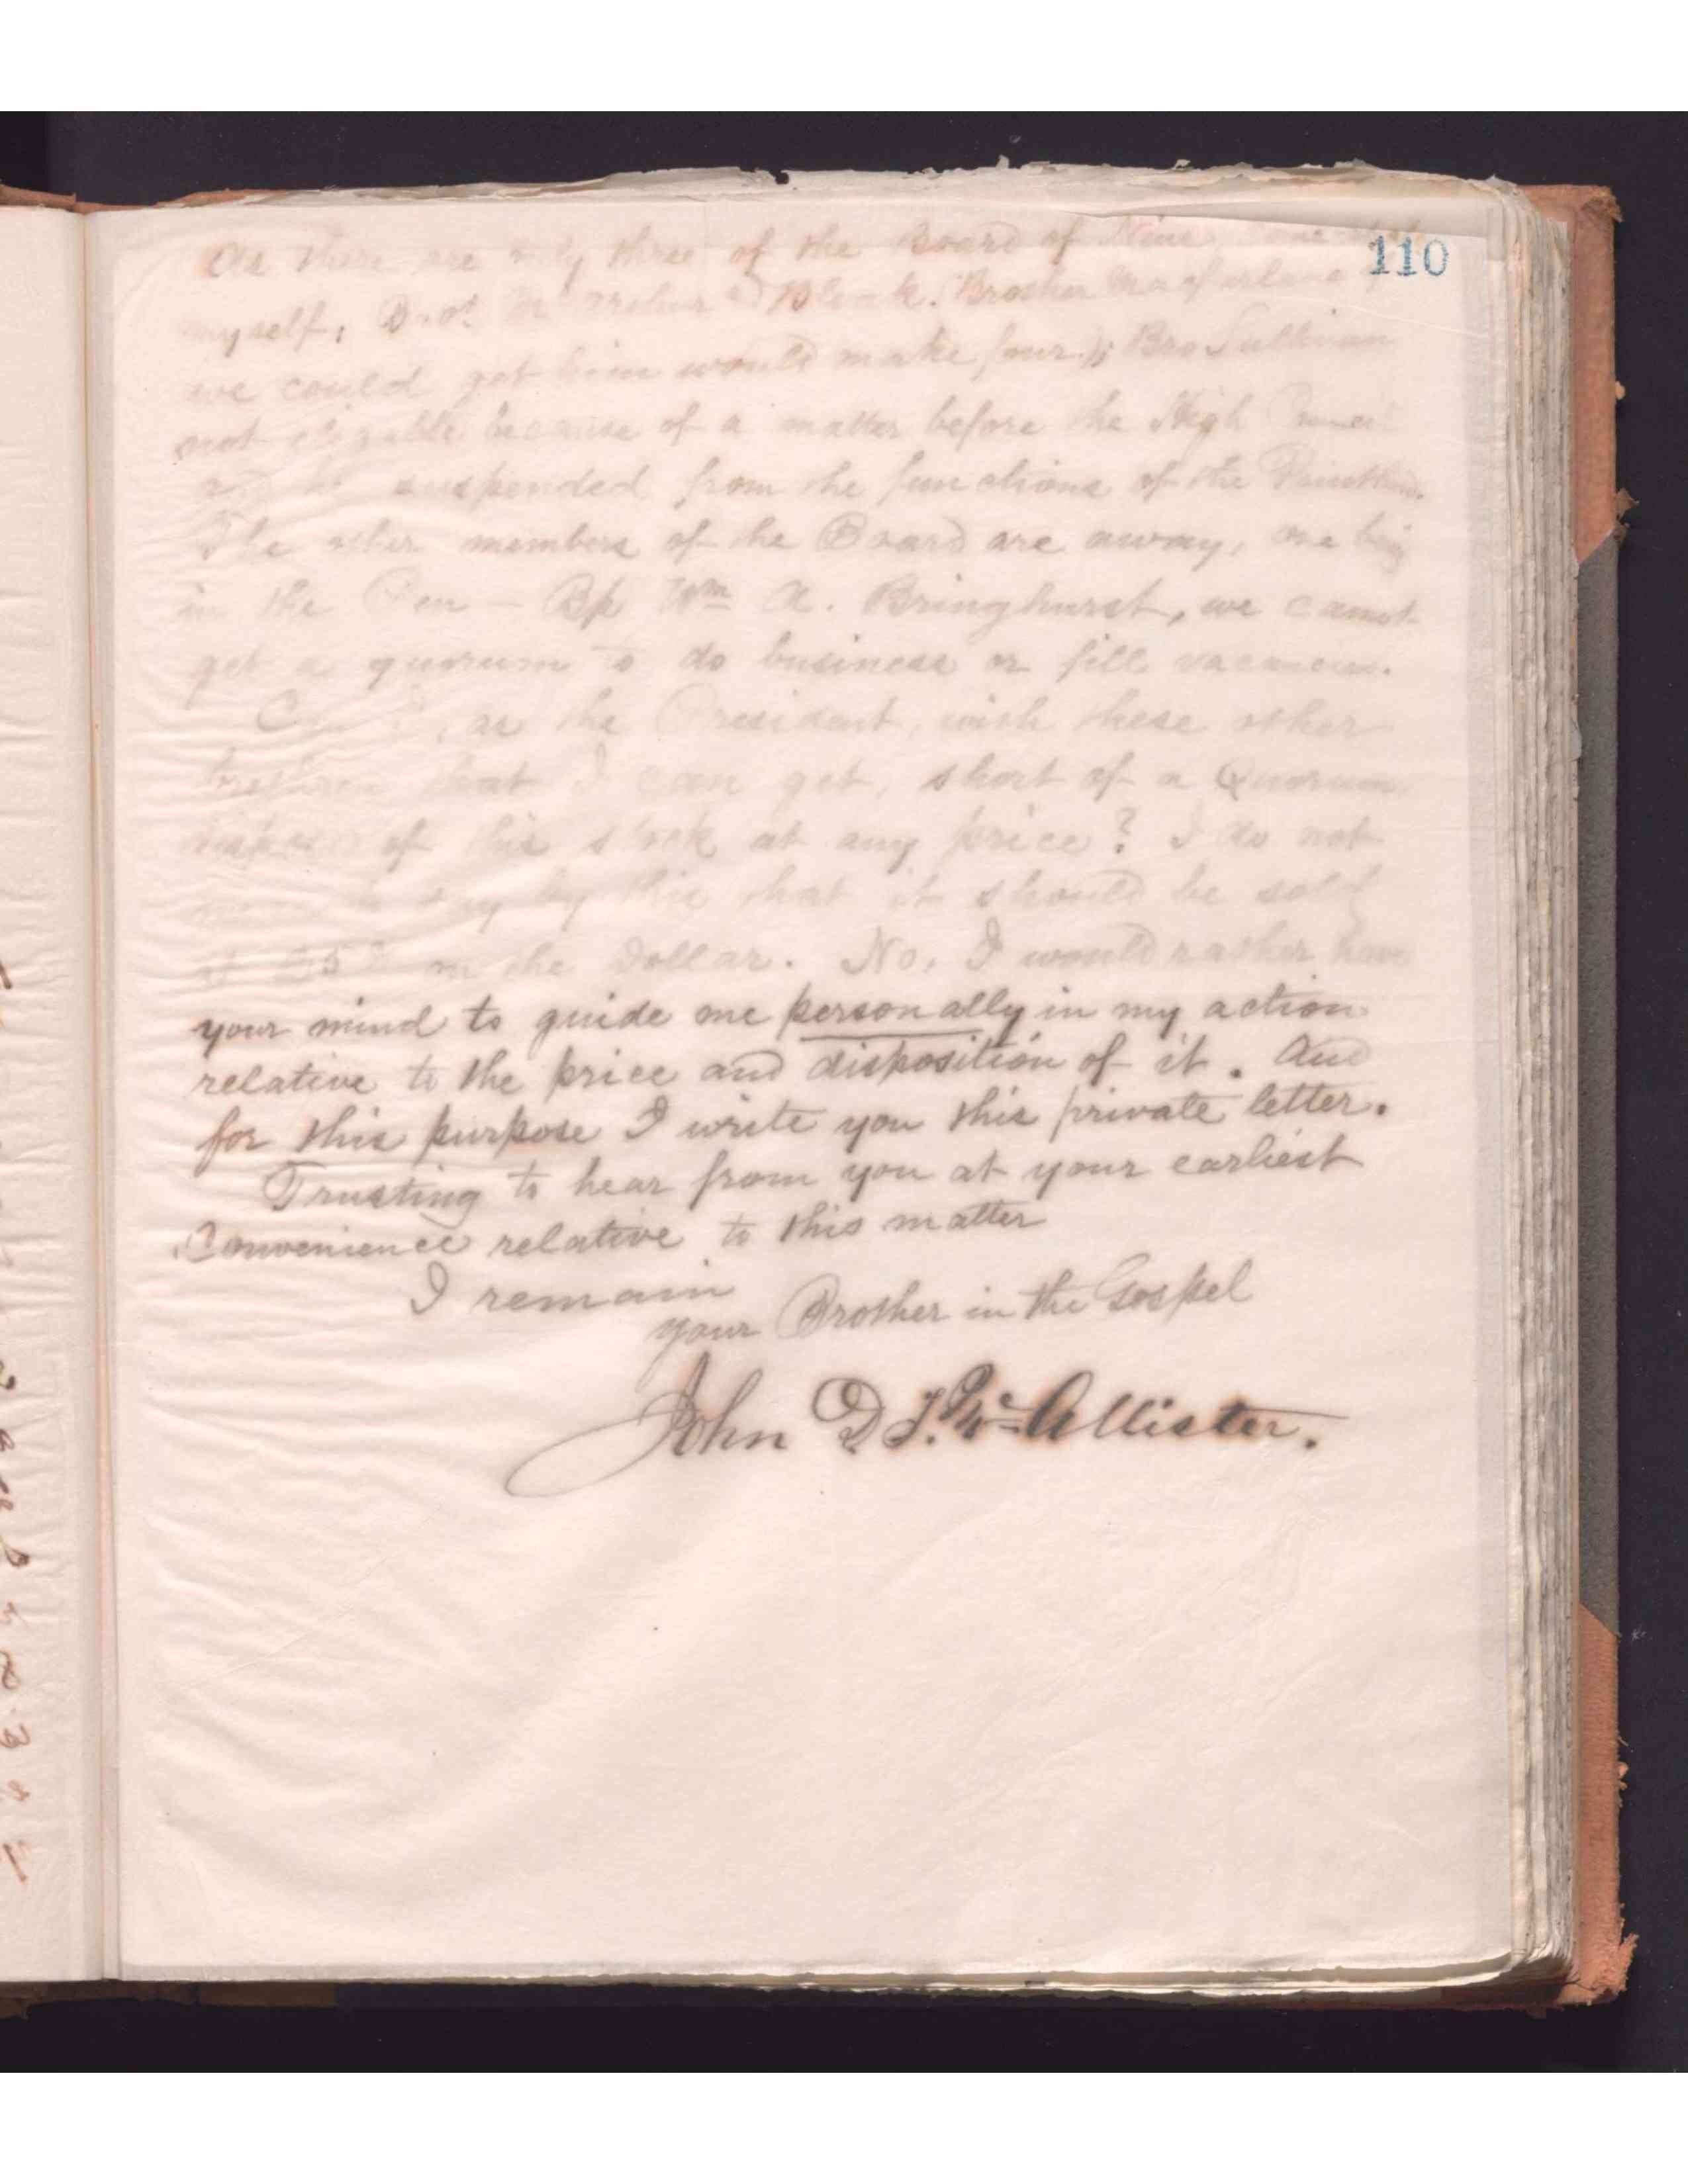 110
As there are only three of the Board of Nine,
myself, Brot McArthur & Bleak. (Brother Macfarlane if
we could get him would make four.); Bro Sullivan
not eligible because of a matter before the High Council
and he suspended from the functions of the Priesthood.
The other members of the Board are away, one being
in the Pen — Bp Wm A. Bringhurst, we cannot
get a quorum to do business or fill vacancies.
Can I, as the President, with these other
brethren that I can get, short of a Quorum
dispose of this stock at any price? I do not
mean to say by this that it should be sold
at on the Dollar. No, I would rather have
your mind to guide me personally in my action
relative to the price and disposition of it. And
for this purpose I write you this private letter.
Trusting to hear from you at your earliest
Convenience relative to this matter
I remain
your Brother in the Gospel
John D T. McAllister.